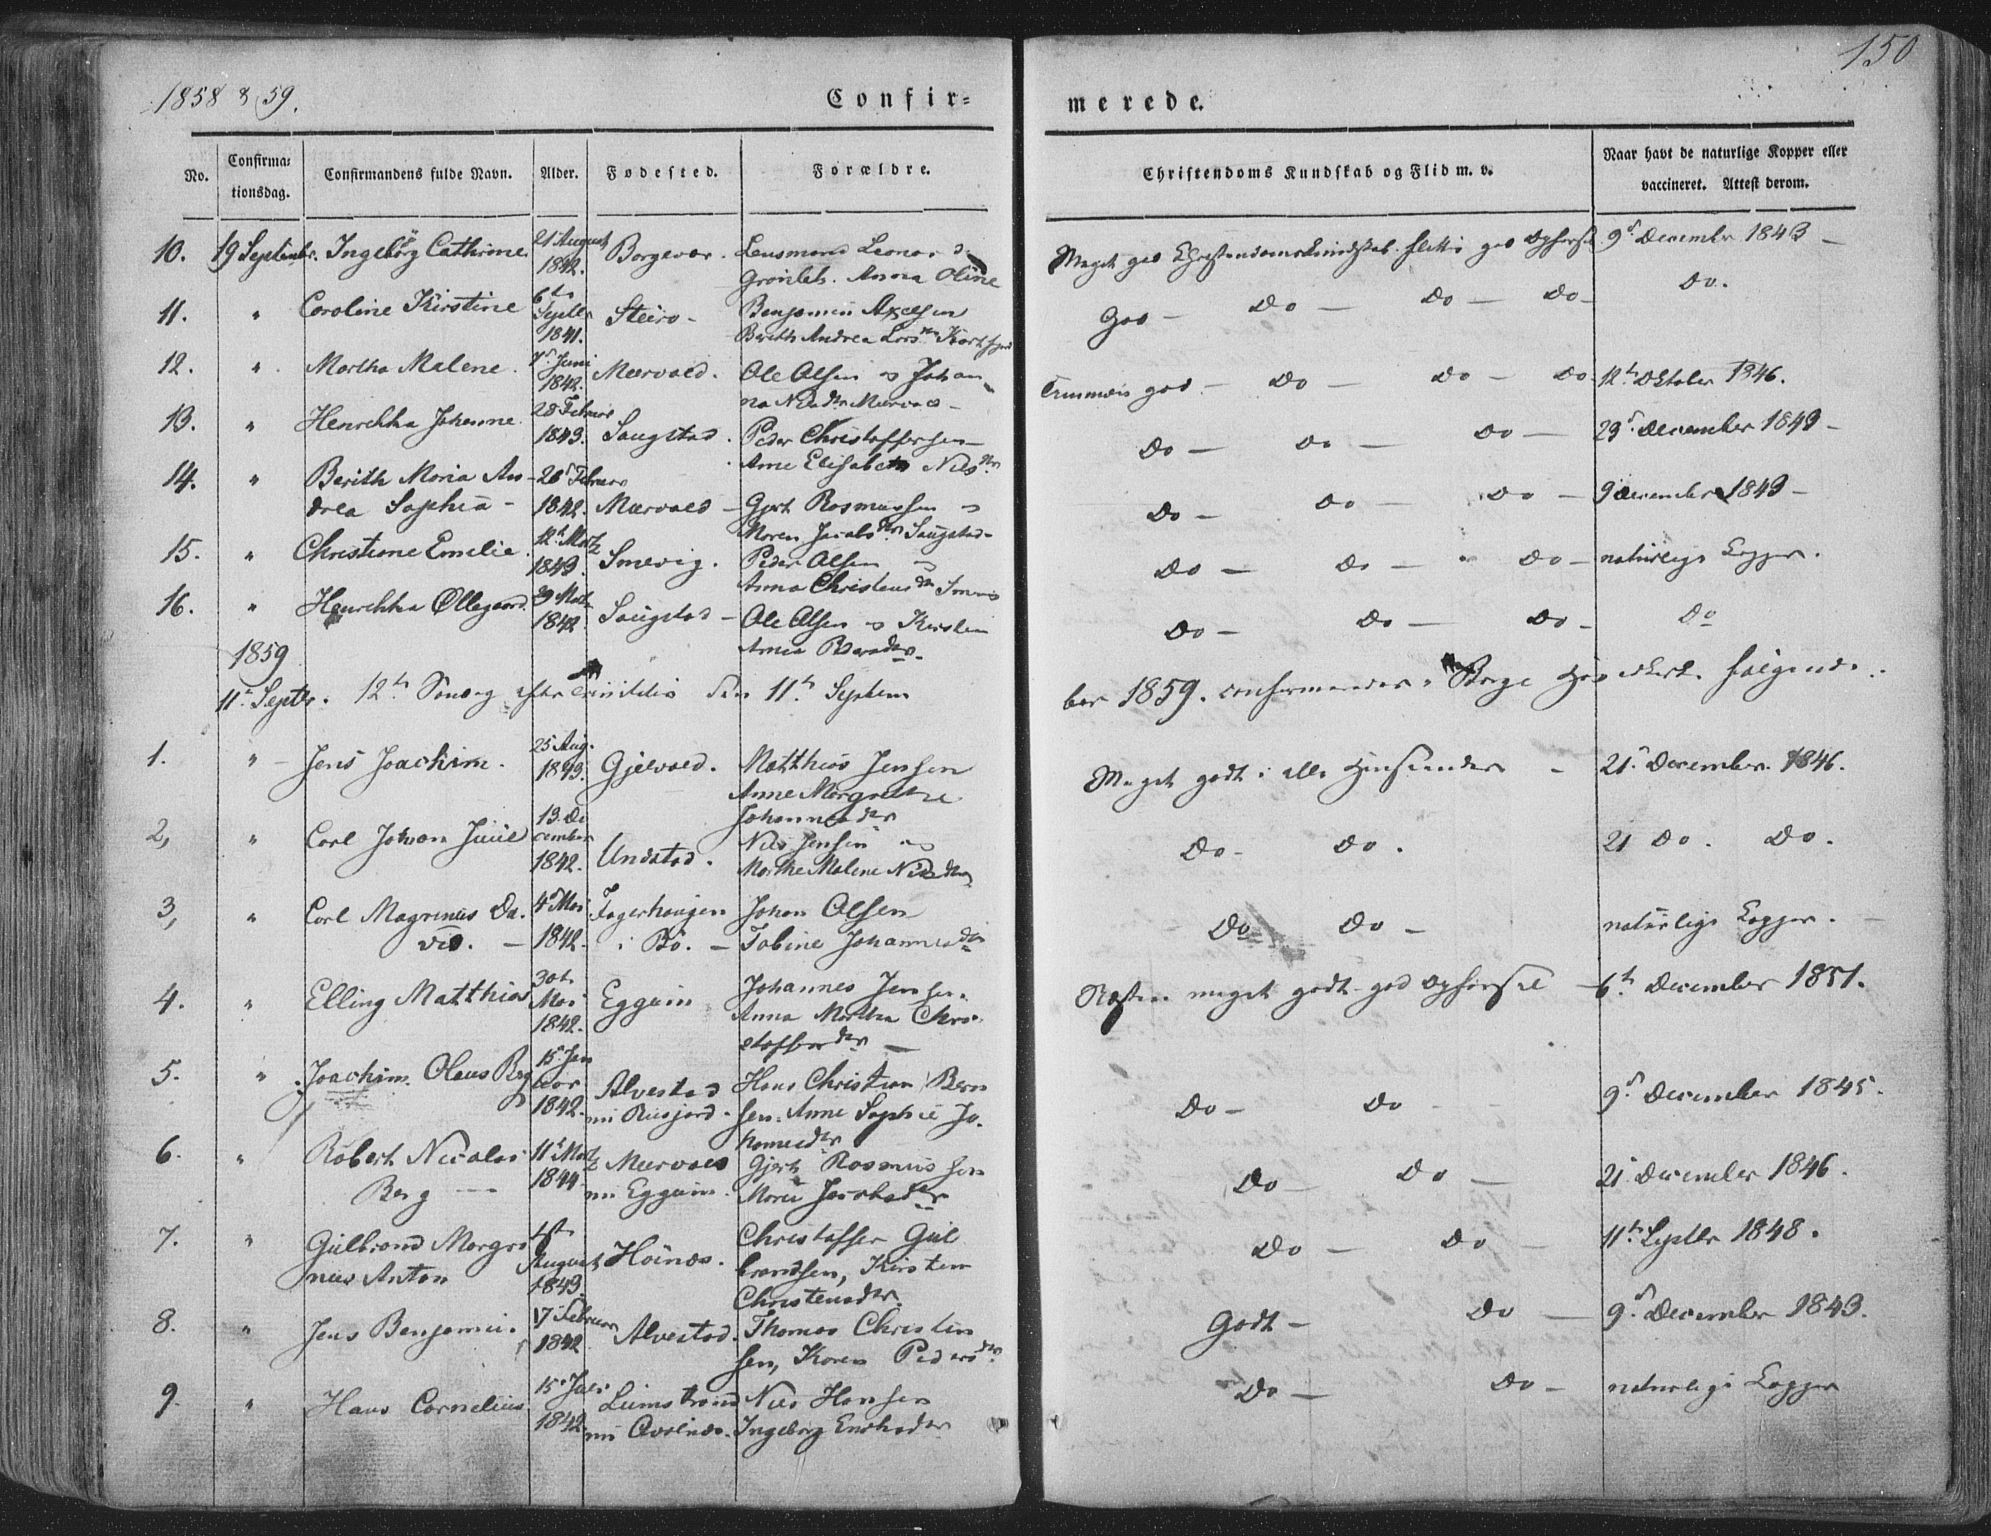 1858 & 59.
Confir=
merede.
150
No.
Confirma=
tionsdag.
Confirmandens fulde Navn.
Alder.
Fødested.
Forældre.
Christendoms Kundskab og Flid m. v.
Naar havt de naturlige Kopper eller
vaccineret. Attest derom.
10. 19 Septembr. Ingebörg Cathrine 21 August 1842. Borgevær. Lensmand Leonard
Grönbeh. Anna Oline
Meget god Christendomskundskab. god Opførsel 9d December 1843 -
11. " Caroline Kirstine 6te Septbr 1841. Steiro - Benjamin Axelsen
Berith Andrea Lars
God - Do - Do - Do - Do.
12. " Martha Malene. 7d Juni 1842. Mærvold. Ole Olsen og Johan-
na Nilsdtr Mærvold -
Temmelig god - Do - Do - Do 12te Oktober 1846.
13. " Henrikka Johanne. 28 Februar 1843. Saugstad. Peder Christoffersen -
Ane Elisabeth Nilsdtr
Do - Do - Do - 29d December 1843 -
14. " Berith Maria An-
drea Sophia - 26d Februar 1842. Mærvold - Gjert Rasmussen og
Maren Jacobsdtr Saugstad -
Do - Do - Do - 9 December 1843 -
15. " Christiane Emelie. 12te Martz 1843. Smevig. Peder Olsen og
Anna Christensdtr
Do - Do - Do - naturlige Kopper.
16. " Henrikka Ollegaard. 1842 Saugstad - Ole Olsen og Kirsten
Do - Do - Do - Do
1859
11te Septbr. 12te Søndag efter Trinitatis den 11te Septem
ber 1859. confirmeredes i Borge Hovedkirke følgende:
1. " - Jens Joachim. 25 Aug. 1843. Gjelvold. Matthias Jensen
Anne Margrethe
Johannesdtr
Meget godt i alle Henseender - 21d December 1846.
2, " Carl Johan Juul 13. De
cember
1842. Undstad. Nils Jensen og
Marthe Malene Nilsdtr
Do - Do. 21 Do. Do.
3, " Carl Magrenus Da-
vid. - 4d Mai 1842. Fagerhaugen
i Bö. - Johan Olsen
Tobine Johannesdtr
Do Do - naturlige Kopper. -
4. " Elling Matthias 30t Mai 1842. Eggum Johannes Jensen.
Anna Martha Chri-
stoffersdtr -
Næsten meget godt - god Opførsel - 6te December 1851.
5. " Joachim Olaus Berg 15d Jan
uar
1842. Alvestad
nu Rusjord. Hans Christian Bern
sen. Anne Sophie Jo-
hannesdtr
Do - Do - - 9d December 1845.
6. " Robert Nicolai
Berg - 11te Martz
1844 Mærvold
nu Eggum. Gjert Rasmussen
Maren Jacobsdtr
Do - Do - 21d December 1846.
7. " Gulbrand Magre
nius Anton 1ste
August
1843. Höinæs. Christoffer Gul
brandsen, Kirsten
Christensdtr.
Do - Do - 11te Septbr 1848.
8. " Jens Benjamin. 17d Februar
1842 Alvestad. Thomas Christen
sen, Karen Pedersdtr.
Godt - Do - 9d December 1843.
9. " Hans Cornelius 15d Juli
1842. Limstrand
nu Qvalnæs. Nils Hansen
Ingeborg
Do - Do - naturlige Kopper